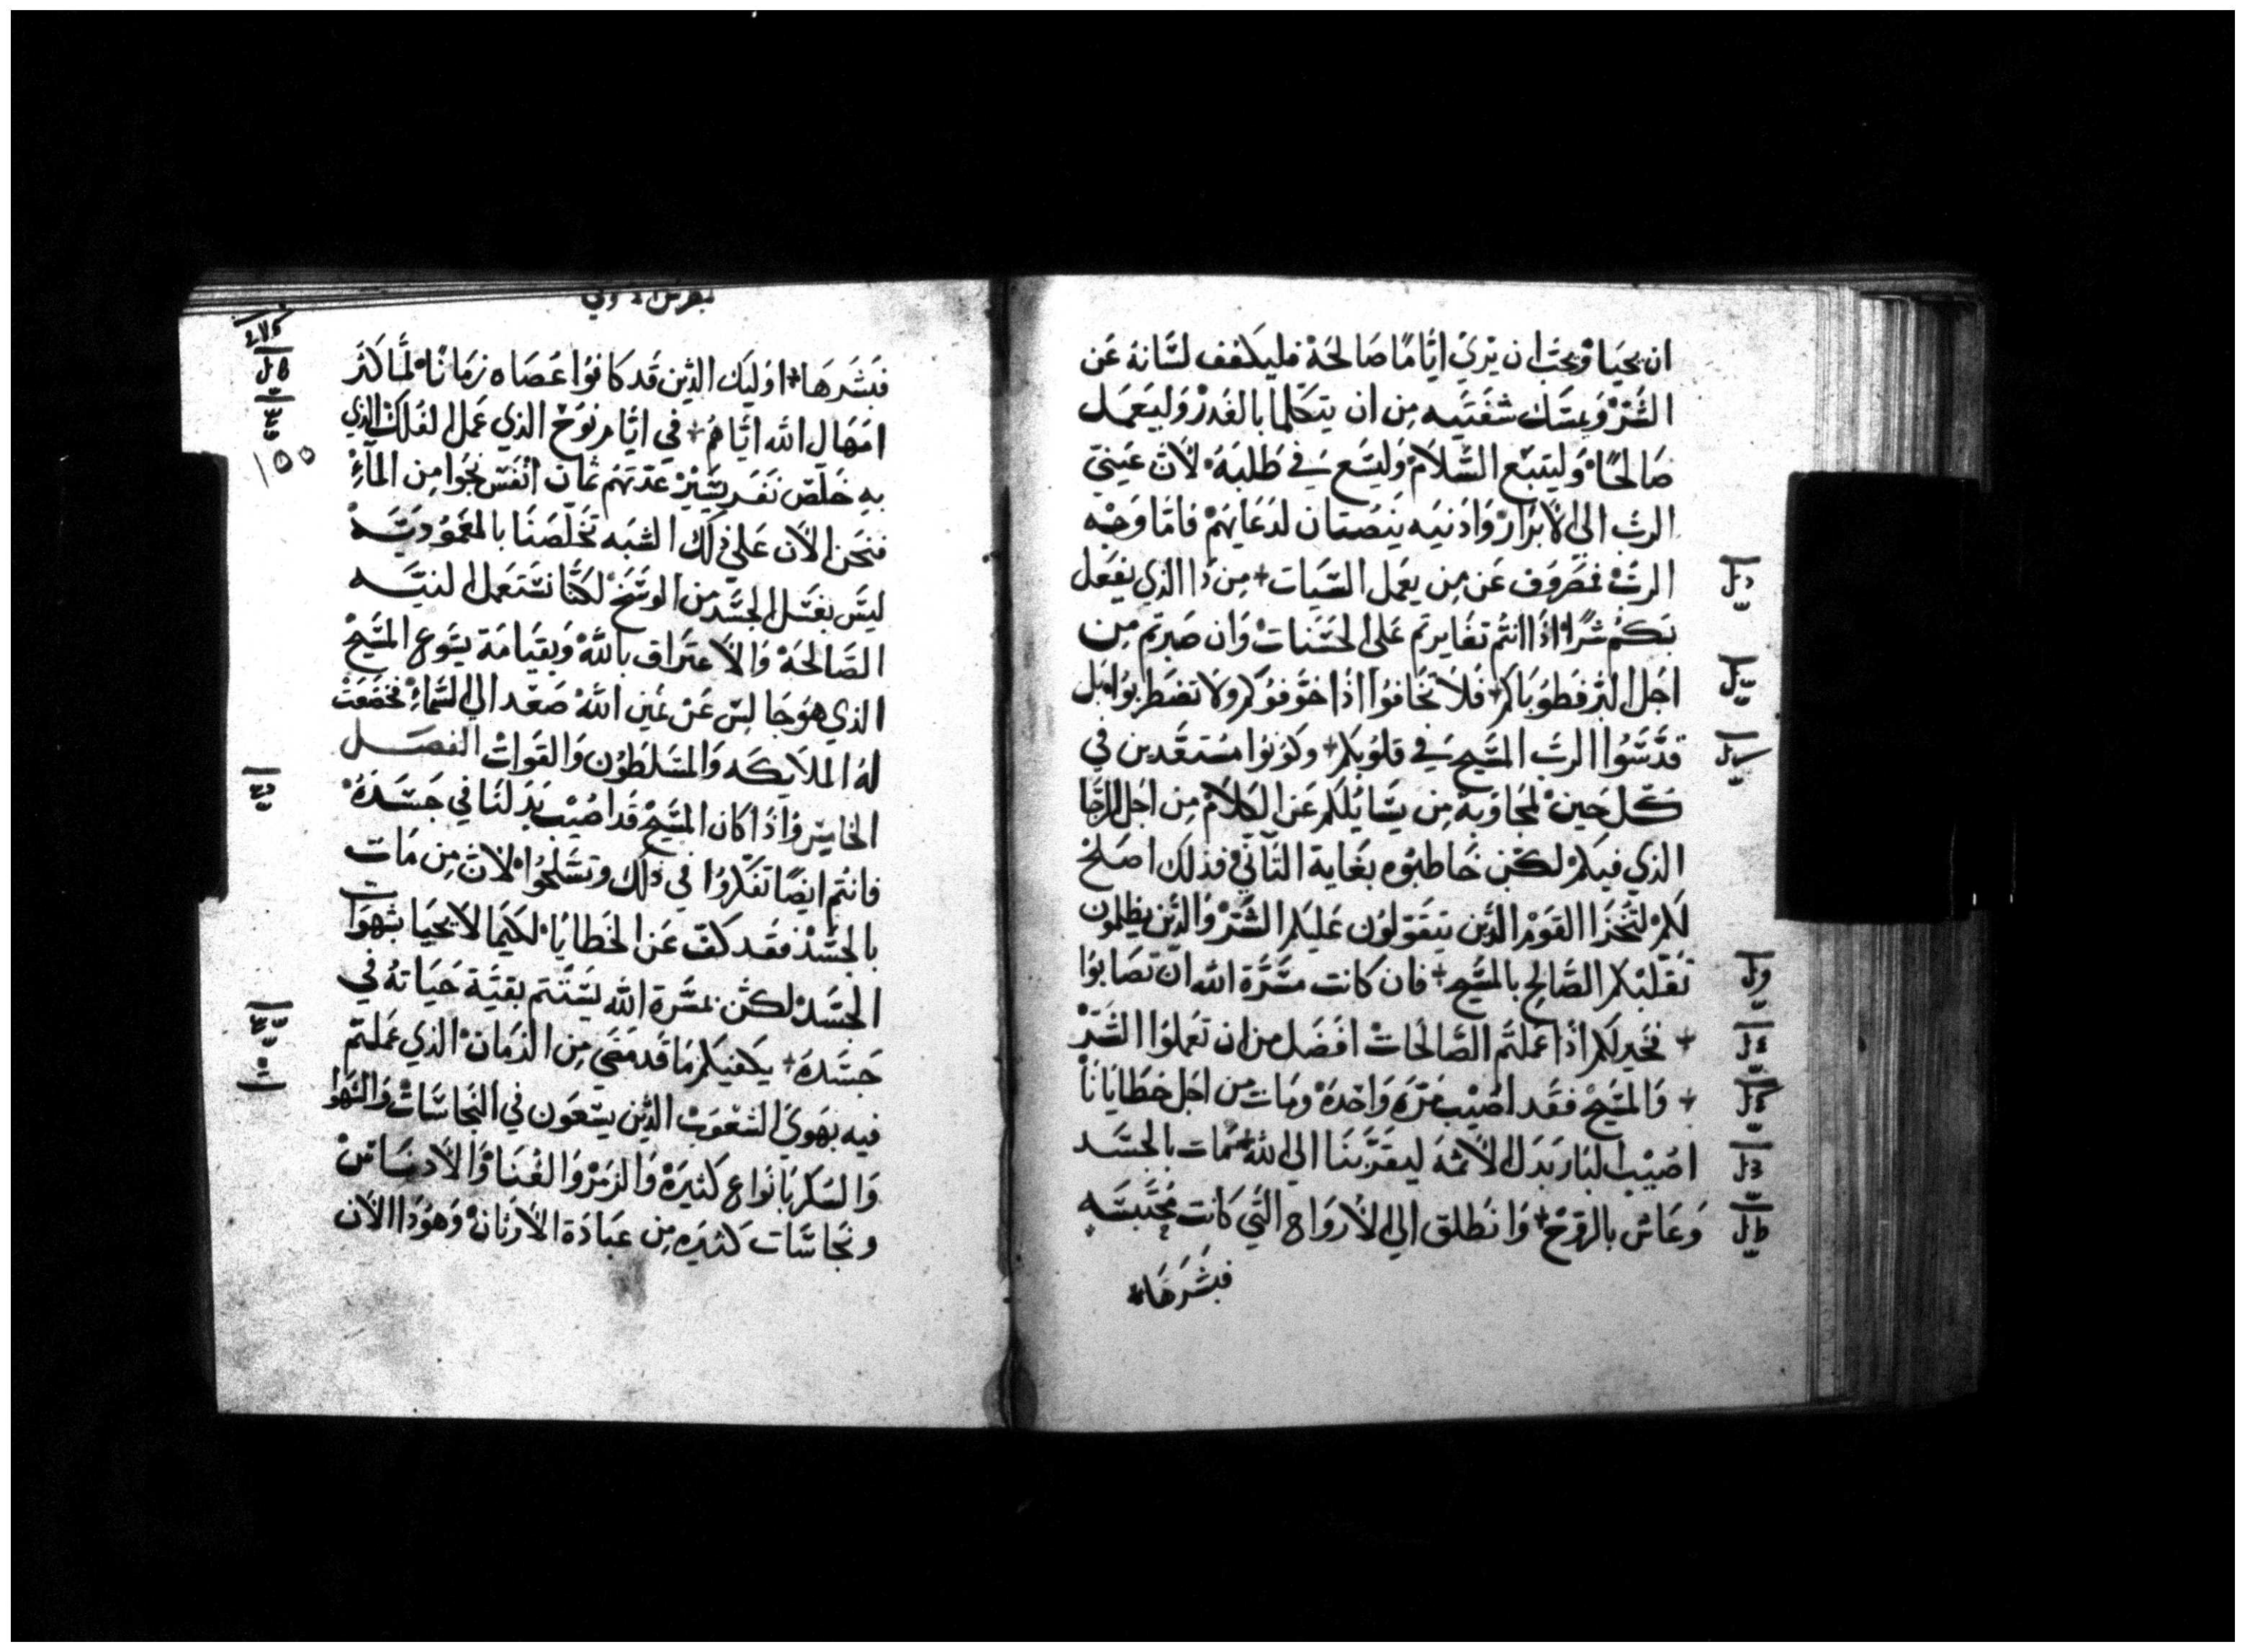 ان يحيا ويحب ان يري ايامًا صالحة فليكفف لسانه عن
الشر ويمسك شفتيه من ان يتكلما بالغدر وليعمل
صالحًا وليتبع السلام وليسع في طلبه لان عيني
الرب الي الابرار واذنيه ينصتان لدعايهم فاما وجه
الرب فمصروف عن من يعمل السيات + من ذا الذي يفعل
بكم شرًا اذا انتم تغايرتم علي الحسنات وان صبرتم من
اجل البر فطوباكم + فلا تخافوا اذا خوفوكم ولا تضطربوا بل
قدسوا الرب المسيح في قلوبكم + وكونوا مستعدين في
كل حين لمجاوبة من يسايلكم عن الكلام من اجل الرجا
الذي فيكم لكن خاطبوه بغاية التاني فذلك اصلح
لكم لتخزا القوم الذين يتقولون عليكم الشر والذين يظلمون
تقلبكم الصالح بالمسيح + فان كانت مسرة الله ان تصابوا
+ فخير لكم اذا عملتم الصالحات افضل من ان تعملوا الشر
+ والمسيح فقد اصيب مرة واحدة ومات من اجل خطايانا
اصيب البار بدل الاثمة ليقربنا الي الله + مات بالجسد
وعاش بالروح + وانطلق الي الارواح التي كانت محتبسه
فبشرها
فبشرها + اوليك الذين قد كانوا عصاه زمانًا لما كثر
امهال الله اياهم + في ايام نوح الذي عمل الفلك الذي
به خلص نفر يسير عدتهم ثمان انفس نجوا من المآء
فنحن الان علي ذلك الشبه تخلصنا بالمعمودية
ليس بغسل الجسد من الوسخ لكنا نستعمل النيه
الصالحة والاعتراف بالله وبقيامة يسوع المسيح
الذي هو جالس عن يمين الله صعد الي السماء فخضعت
له الملايكه والمسلطون والقوات الفصل
الخامس واذا كان المسيح قد اصيب بدلنا في جسده
فانتم ايضًا تفكروا في ذلك وتسلحوا لان من مات
بالجسد فقد كف عن الخطايا لكيما لا يحيا بشهوات
الجسد لكن بمسرة الله يستتم بقية حياته في
جسده + يكفيكم ما قد مضي من الزمان الذي عملتم
فيه بهوي الشعوب الذين يسعون في النجاسات والشهوا
والسكر بانواع كثيرة والزمر والغنا والادناس
ونجاسات كثيره من عبادة الاوثان وهوذا الان
١٥٥